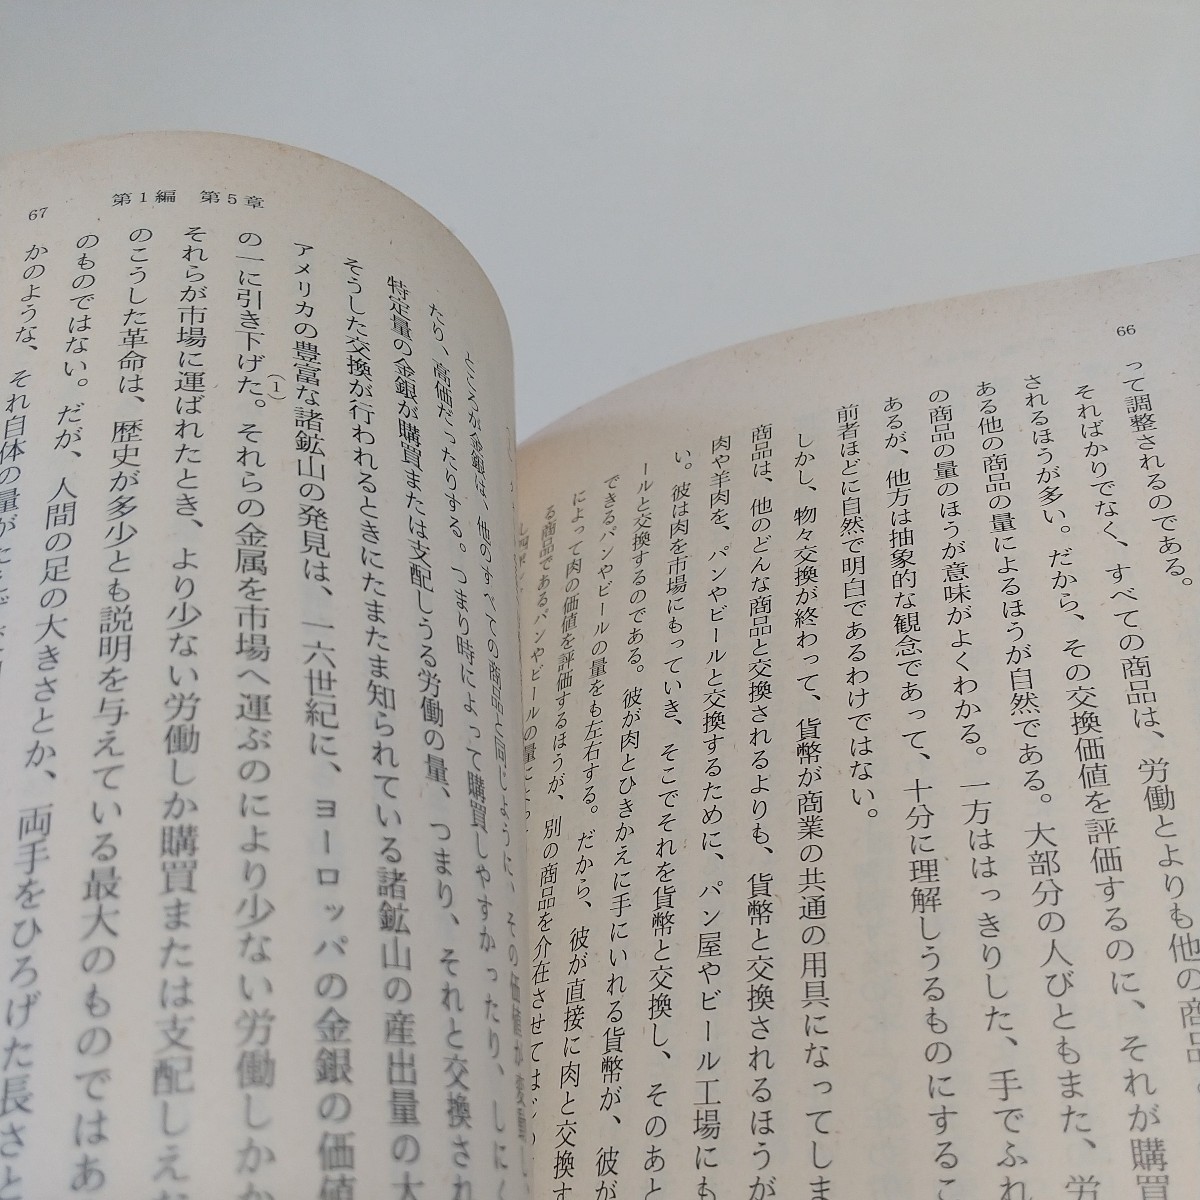 66
って調整されるのである。
そればかりでなく、すべての商品は、労働とよりも他の商品
されるほうが多い。だから、その交換価値を評価するのに、それが購買
ある他の商品の量によるほうが自然である。大部分の人びともまた、労
の商品の量のほうが意味がよくわかる。一方ははっきりした、手でふれ
あるが、他方は抽象的な観念であって、十分に理解しうるものにするこ
前者ほどに自然で明白であるわけではない。
しかし、物々交換が終わって、貨幣が商業の共通の用具になってしま
商品は、他のどんな商品と交換されるよりも、貨幣と交換されるほうが
肉や羊肉を、パンやビールと交換するために、パン屋やビール工場にも
い。彼は肉を市場にもっていき、そこでそれを貨幣と交換し、そのあと
ールと交換するのである。彼が肉とひきかえに手にいれる貨幣が、彼が
できるパンやビールの量をも左右する。だから、彼が直接に肉と交換す
によって肉の価値を評価するほうが、別の商品を介在させては
る商品であるパンやビールの量によっ
67
第1編 第5章
ところが金銀は、他のすべての商品と同じように、その価値が変動し、
たり、高価だったりする。つまり時によって購買しやすかったり、しにく
特定量の金銀が購買または支配しうる労働の量、つまり、それと交換され
そうした交換が行われるときにたまたま知られている諸鉱山の産出量の大
アメリカの豊富な諸鉱山の発見は、一六世紀に、ヨーロッパの金銀の価値
の一に引き下げた。(1)それらの金属を市場へ運ぶのにより少ない労働しか
それらが市場に運ばれたとき、より少ない労働しか購買または支配しえな
のこうした革命は、歴史が多少とも説明を与えている最大のものではあ
のものではない。だが、人間の足の大きさとか、両手をひろげた長さと
かのような、それ自体の量が